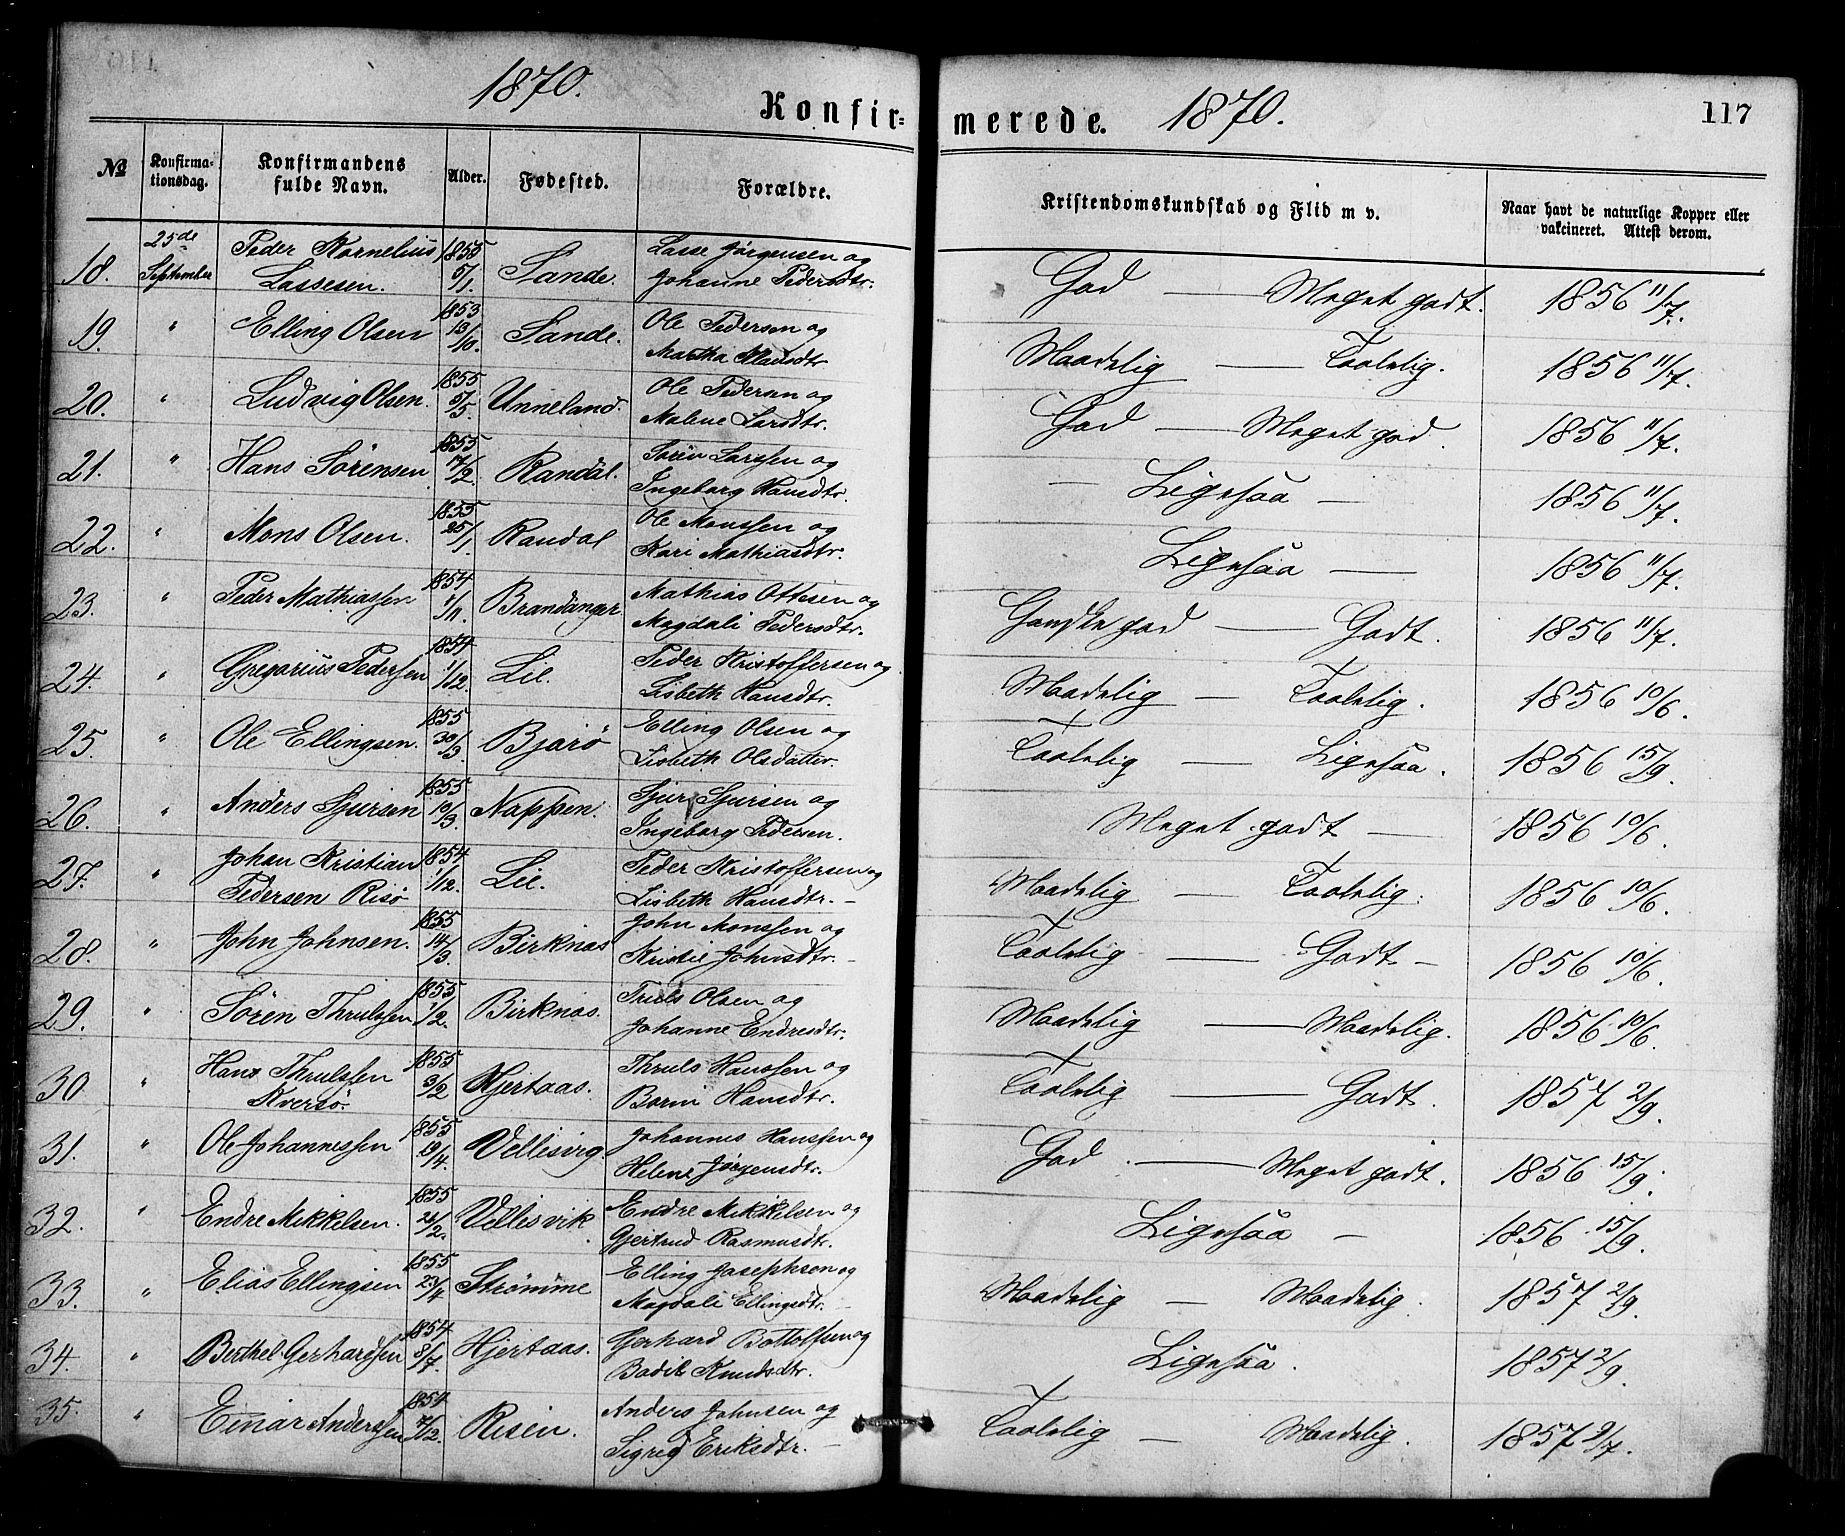 1870.
Konfir=
merede.
1870.
117
№
Konfirma-
tionsdag.
Konfirmandens
fulde Navn.
Alder.
Fødested.
Forældre.
Kristendomskundskab og Flid m v.
Naar havt de naturlige Kopper eller
vakcineret. Attest derom.
18. 25de September Peder Kornelius Lassesen. 1855 5/1. Sande. Lasse Jørgensen og Johanne Pedersdtr. God — Meget godt. 1856 11/7.
19. " Elling Olsen 1853 13/10. Sande. Ole Pedersen og Martha Klausdtr. Maadelig — Taalelig. 1856 11/7.
20. " Ludvig Olsen. 1855 5/5. Unneland. Ole Pedersen og Malene Larsdtr. God — Meget god. 1856 11/7.
21. " Hans Sørensen 1855 Randal. Søren Larssen og Ingeborg Hansdtr. — Ligesaa — 1856 11/7.
22. " Mons Olsen. 1855 25/1. Randal Ole Monssen og Kari Mathiasdtr. Ligesaa — 1856 11/7.
23. " Peder Mathiassen 1854 1/11. Brandanger Mathias Ottesen og Magdali Pedersdtr. Ganske god — Godt. 1856 11/7.
24. " Gregorius Pederssen 1854 1/12. Lie. Peder Kristoffersen og Lisbeth Hansdtr. Maadelig — Taalelig. 1856 10/6.
25. " Ole Ellingsen. 1855 30/3. Bjørø Elling Olsen og Lisbeth Olsdatter. Taalelig — Ligesaa. 1856 15/9.
26. " Anders Sjursen 1855 19/3. Nappen. Sjur Sjursen og Ingeborg Pedersen. Meget godt — 1856 10/6.
27. " Johan Kristian Pedersen Risø 1854 1/12. Lie. Peder Kristoffersen og Lisbeth Hansdtr. — Maadelig — Taalelig. 1856 10/6.
28. " John Johnsen. 1855 14/3. Birknas John Monssen og Kristie Johnsdtr. — Taalelig — Godt — 1856 10/6.
29. " Søren Thrulssen 1855 1/2. Birknas. Truls Olsen og Johanne Endresdtr. Maadelig — Maadelig. 1856 10/6.
30. " Hans Thrulssen Kversø. 1855 3/2 Hjertaas. Thruls Hanssen og Hansdtr. Taalelig — Godt. 1857 2/9.
31. " Ole Johannessen 1855 19/4. Vellesvig Johannes Hanssen og Helene Jørgensdtr. God. — Meget godt. 1856 15/9.
32. " Endre Mikkelsen. 1855 26/2. Vellesvik. Endre Mikkelsen og Gjertrud Rasmusdtr. Ligesaa — 1856 15/9.
33. " Elias Ellingsen 1855 23/4 Strømme Elling Josephsen og Magdali Ellingsdtr. — Maadelig — Maadelig. 1857 2/9.
34. " Berthel Gerhardsen 1854 8/7. Hjertaas. Gerhard Bottolfsen og Bodil Knudsdtr. Ligesaa. 1857 2/9.
35. " Einar Anderssen 1854 Risen. Anders Johnsen og Sigrid Eriksdtr. — Taalelig — Maadelig. 1857 2/7.